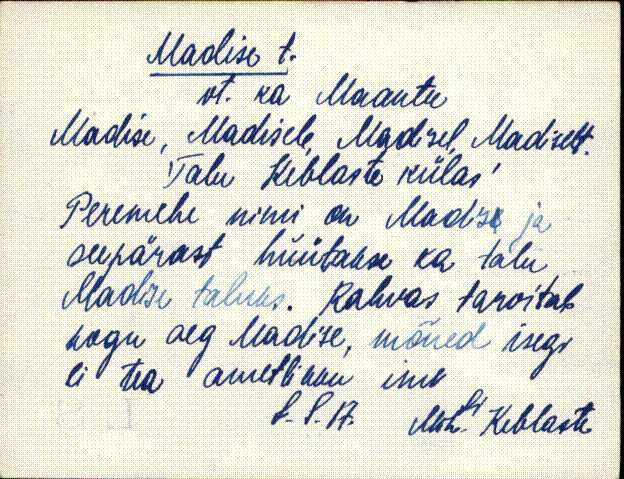 Madise t.
vt. ka Maantee
Madise, Madisele, Madisel, Madiselt.
Talu Keblaste külas
Peremehe nimi on Madis ja
seepärast hüütakse ka talu
Madise taluks. Rahvas tarvitab
kogu aeg Madise, mõned isegi
ei tea ametlikku
Keblaste